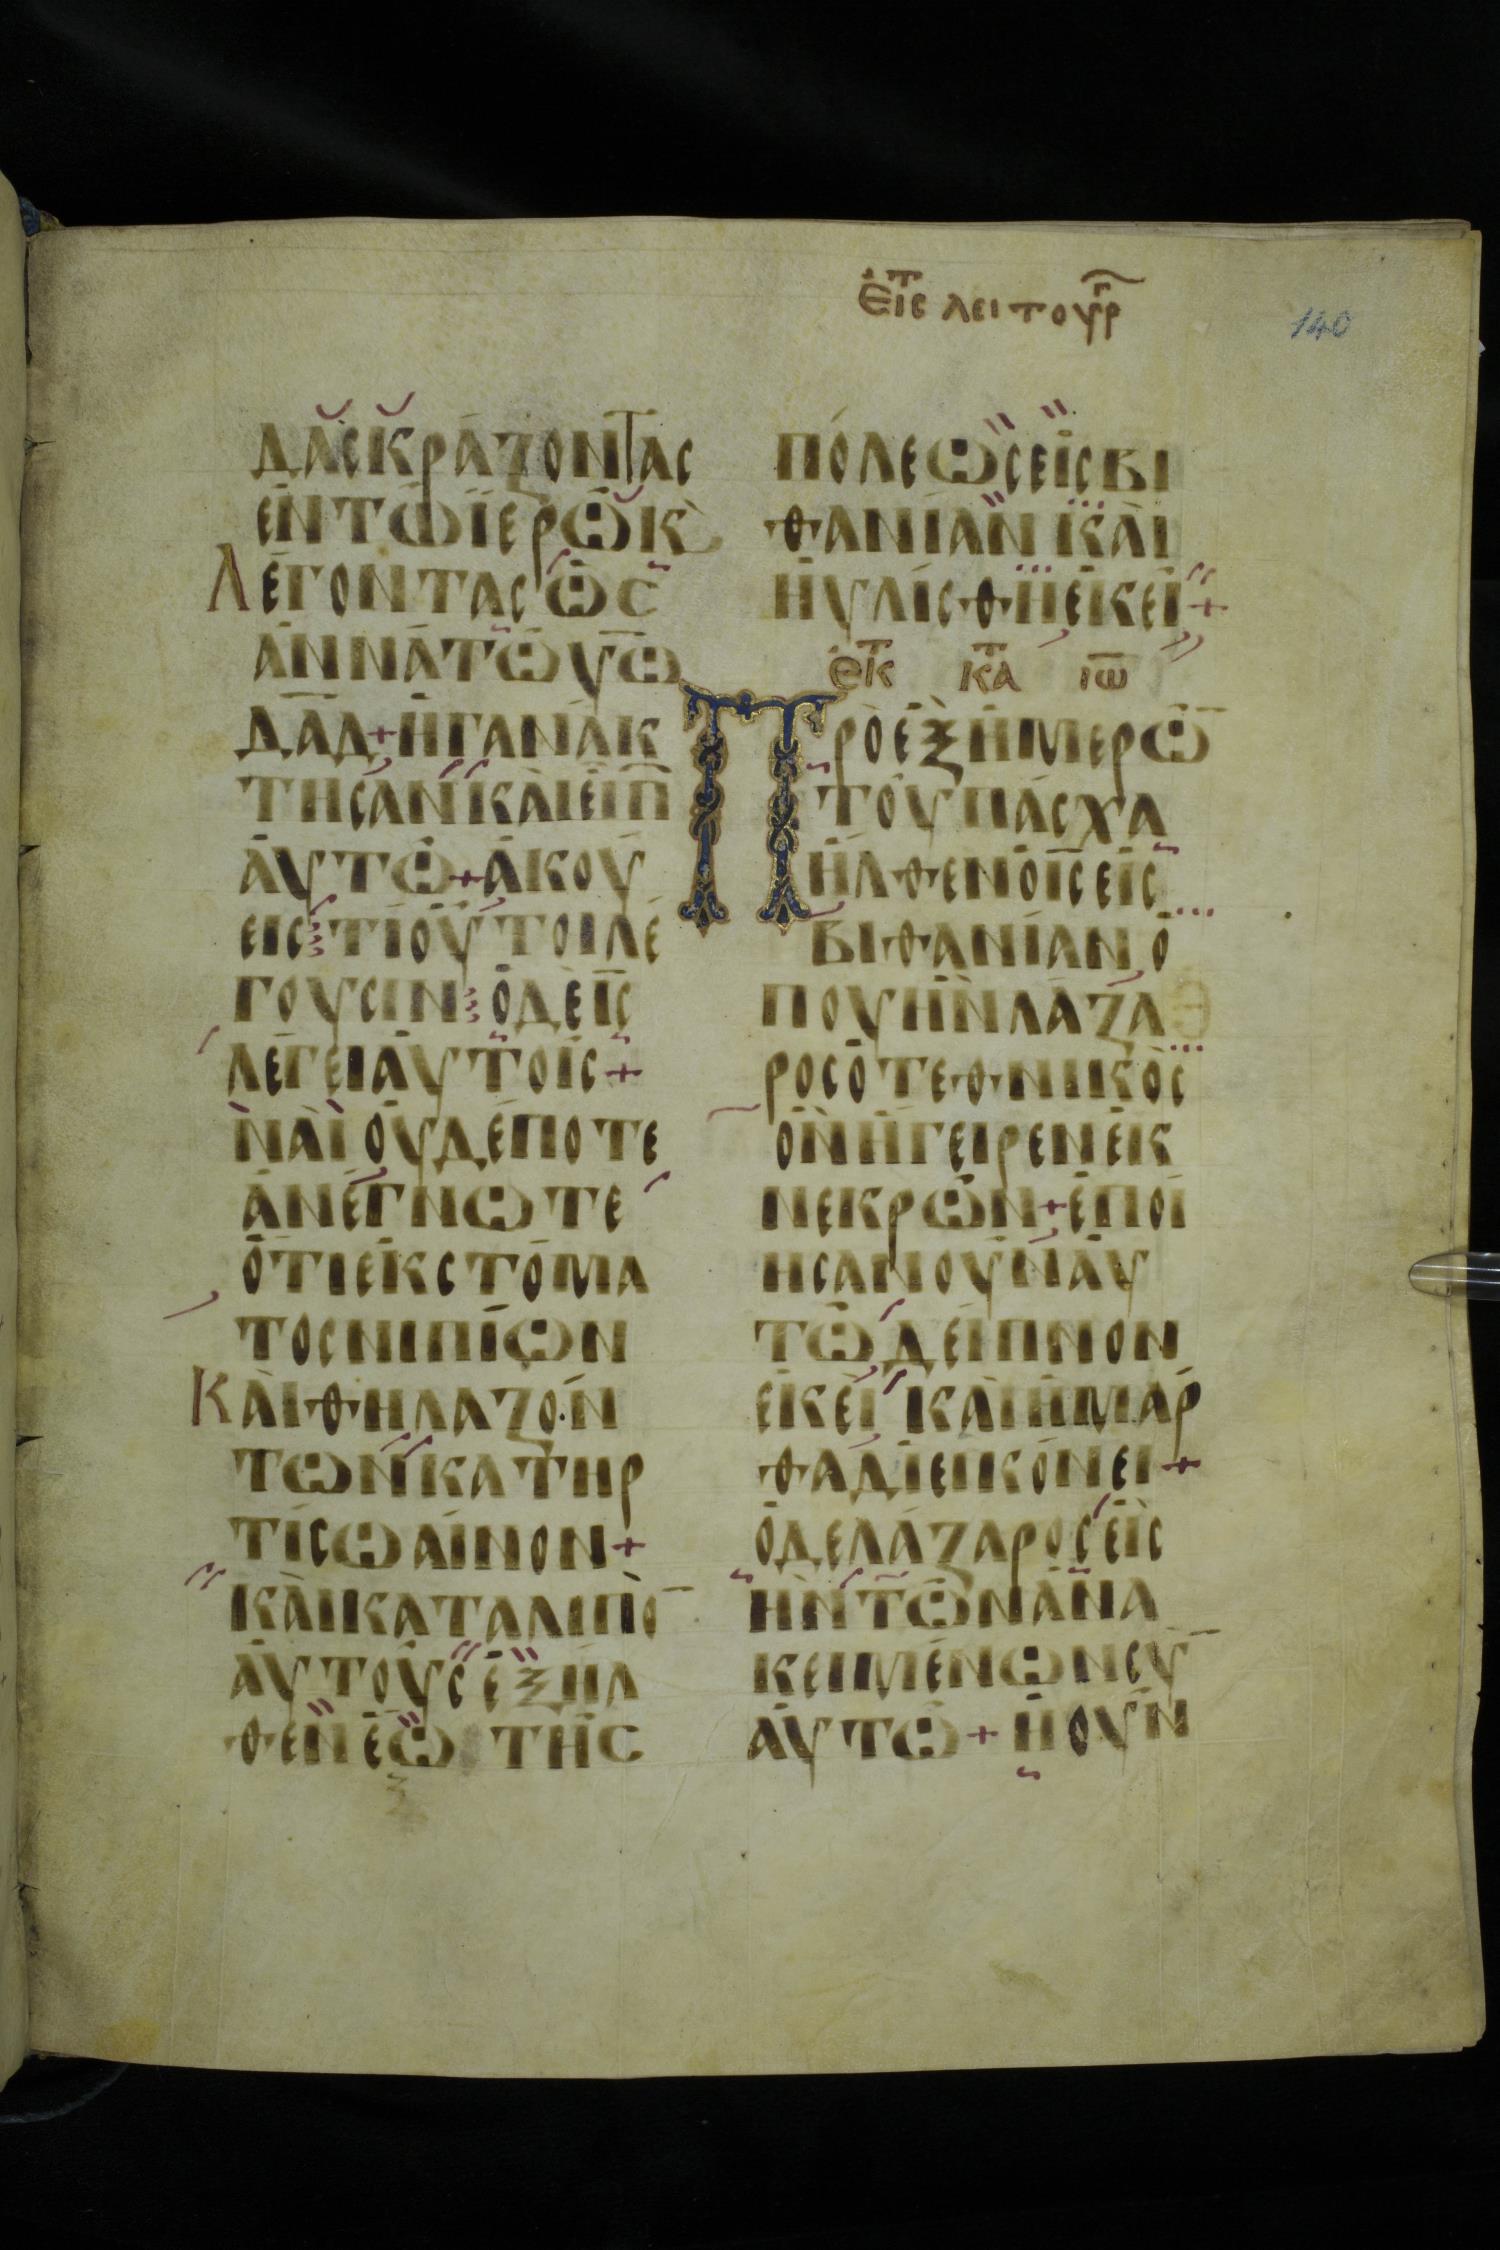 Εἰς λειτουργ
140
ΔΑΣΚΡΑΖΟΝΤΑΣ
ΕΝΤΩΪΕΡΩΚ
ΛΕΓΟΝΤΑΣΩΣ
ΑΝΝΑΤΩΥΩ
ΔΑΔ+ΗΓΑΝΑΚ
ΤΗΣΑΝΚΑΙΕΙΠ
ΑΥΤΩ+ΑΚΟΥ
ΕΙΣΤΙΟΥΤΟΙΛΕ
ΓΟΥΣΙΝΟΔΕΙΣ
ΛΕΓΕΙΑΥΤΟΙΣ+
ΝΑΙΟΥΔΕΠΟΤΕ
ΑΝΕΓΝΩΤΕ
ΟΤΙΕΚΣΤΟΜΑ
ΤΟΣΝΙΠΙΩΝ
ΚΑΙΘΗΛΑΖΟΝ
ΤΩΝΚΑΤΗΡ
ΤΙΣΩΑΙΝΟΝ+
ΚΑΙΚΑΤΑΛΙΠΟ
ΑΥΤΟΥΣΕΞΗΛ
ΘΕΝΕΞΩΤΗΣ
ΠΟΛΕΩΣΕΙΣΒΙ
ΘΑΝΙΑΝΚΑΙ
ΗΥΛΙΣΘΗΕΚΕΙ+
ΕΚ Τ ΚΑΤ ΙΩ
ΠΡΟΕΞΗΜΕΡΩ
ΤΟΥΠΑΣΧΑ
ΗΛΘΕΝΟΙΣΕΙΣ
ΒΙΘΑΝΙΑΝΟ
ΠΟΥΗΝΛΑΖΑ
ΡΟΣΟΤΕΘΝΙΚΟΣ
ΟΝΗΓΕΙΡΕΝΕΚ
ΝΕΚΡΩΝ+ΕΠΟΙ
ΗΣΑΝΟΥΝΑΥ
ΤΩΔΕΙΠΝΟΝ
ΕΚΕΙΚΑΙΗΜΑΡ
ΘΑΔΙΕΙΚΟΝΕΙ+
ΟΔΕΛΑΖΑΡΟΣΕΙΣ
ΗΝΤΩΝΑΝΑ
ΚΕΙΜΕΝΩΝΣΥ
ΑΥΤΩ+ΗΟΥΝ